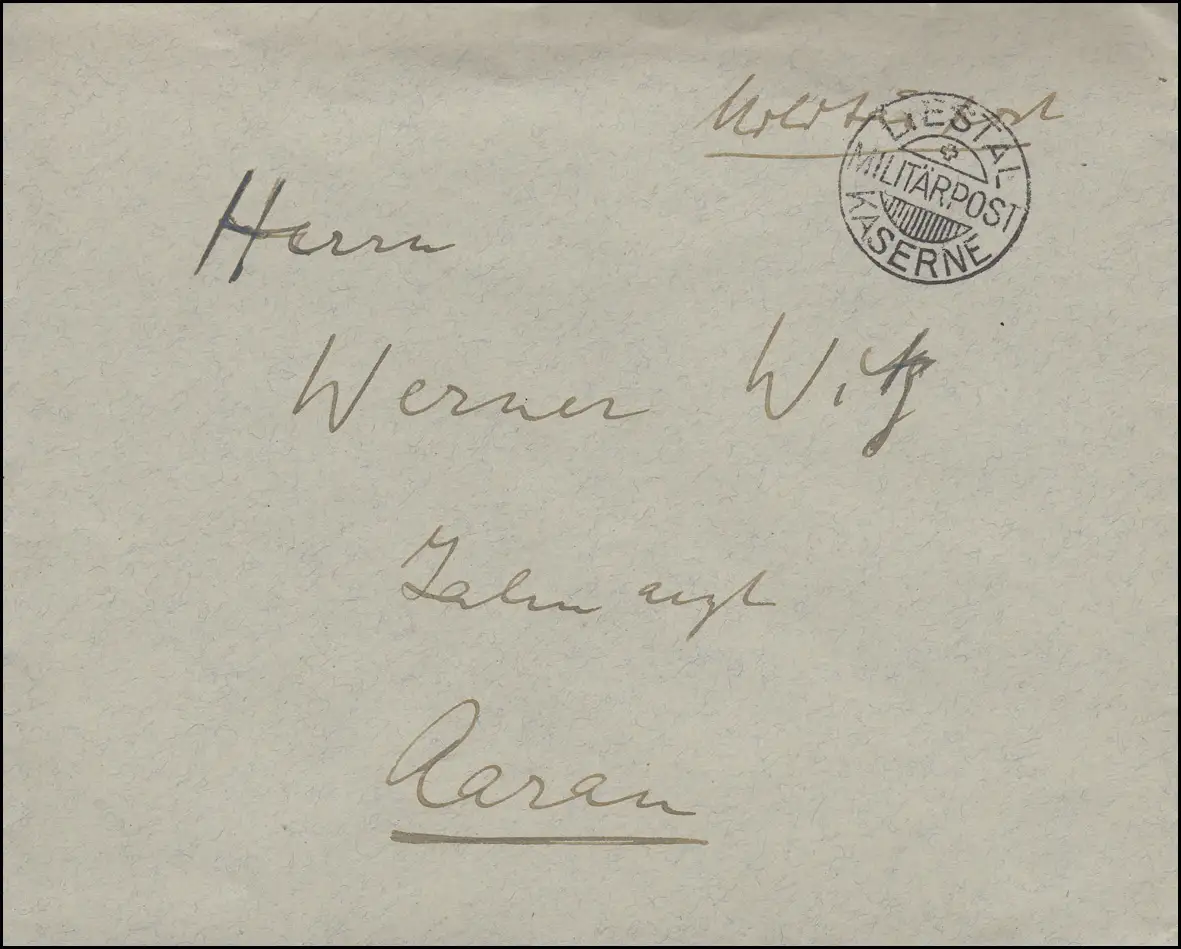 Militärpost
LIESTAL
MILITÄRPOST
KASERNE
Herrn
Werner Witz
Zahnarzt
Aarau